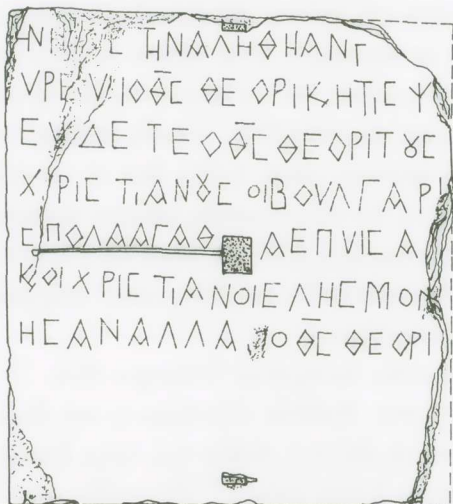 ΤΗΝ ΑΛΗΘΗΑΝ Γ
ΥΡΕΥΙ Ο Θ̅Ϲ̅ ΘΕΟΡΙ Κ Η ΤΙϹ Ψ
ΕΥΔΕΤΕ Ο Θ̅Ϲ̅ ΘΕΟΡΙ ΤȢϹ
ΧΡΙϹΤΙΑΝȢϹ ΟΙ ΒΟΥΛΓΑΡΙ
Ϲ ΠΟΛΑ ΑΓΑΘΑ ΕΠΥΙϹΑ
Κ ΟΙ ΧΡΙϹΤΙΑΝΟΙ ΕΛΗϹΜΟΝ
ΗϹΑΝ ΑΛΛΑ Ο Θ̅Ϲ̅ ΘΕΟΡΙ